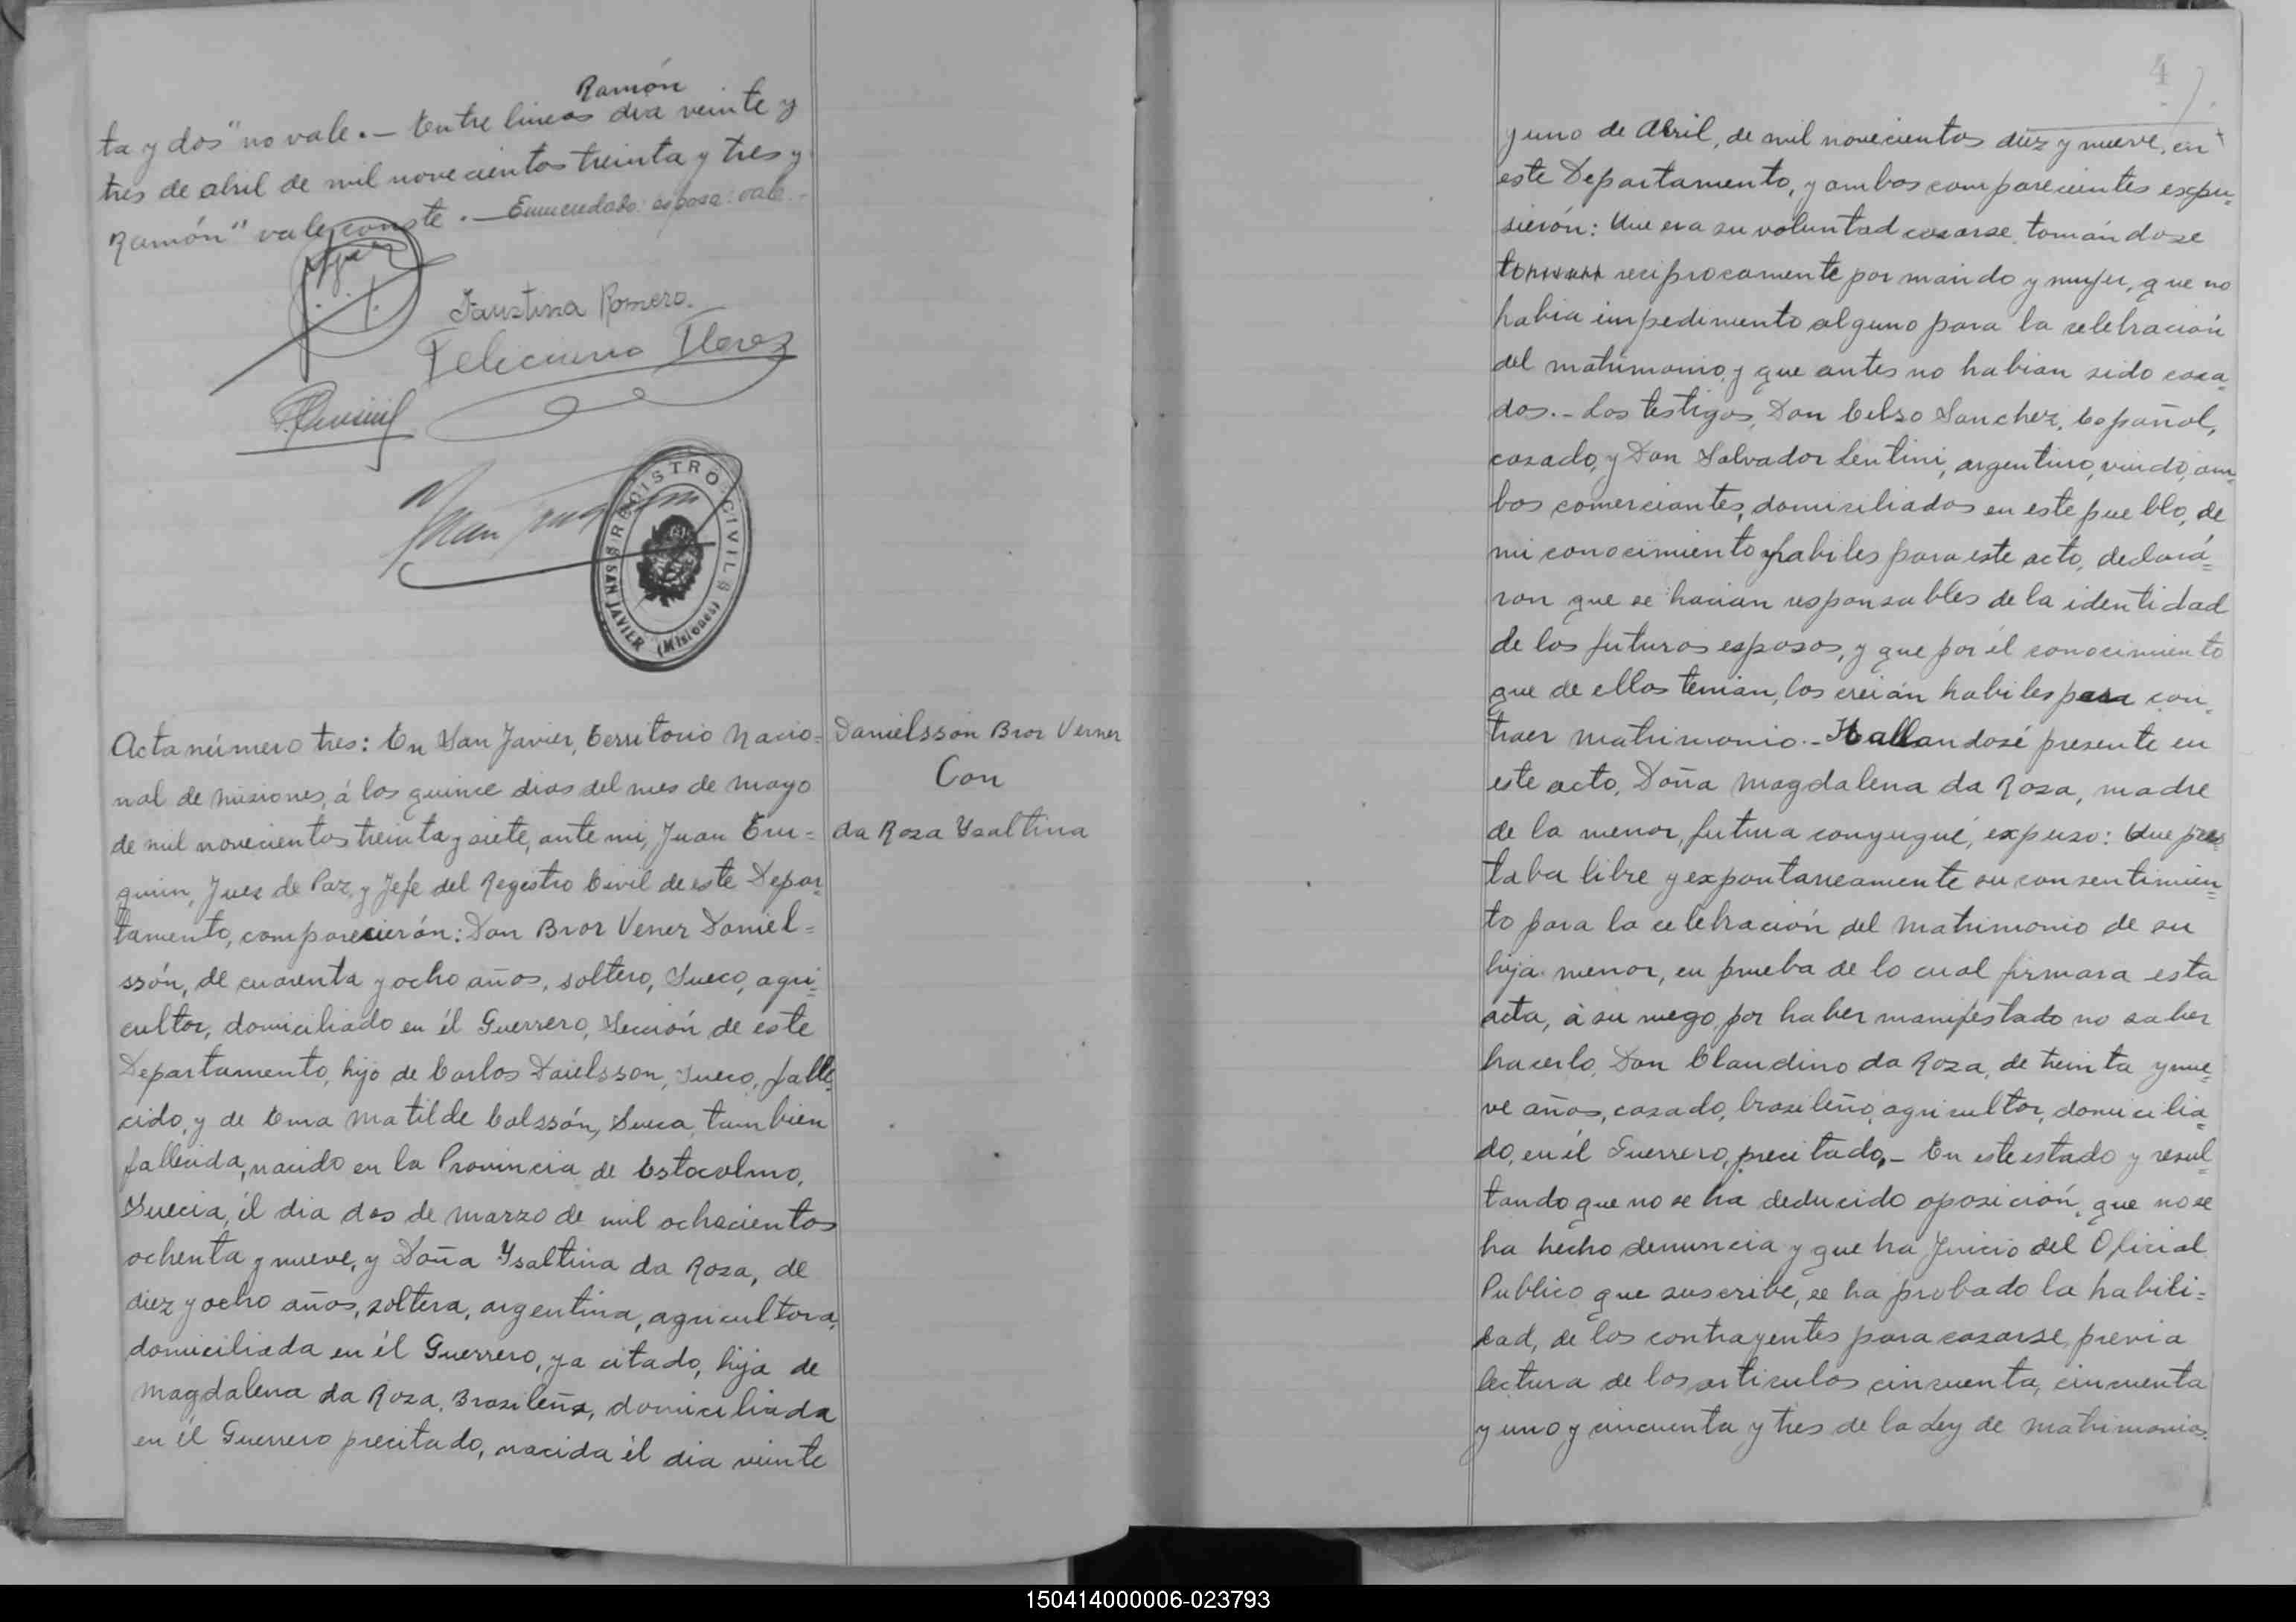 Ramón
ta y dos" no vale.— Entre lineas dia veinte y
tres de abril de mil novecientos treinta y tres y
Ramón" vale conste.— Enmendado: esposa: vale.-
Faustina Romero.
Feliciano Florez
REGISTRO CIVIL
SAN JAVIER (Misiones)
Acta número tres: En San Javier, Territorio Nacio=
nal de Misiones, á los quince dias del mes de mayo
de mil novecientos treinta y siete, ante mi, Juan Eru=
quin, Juez de Paz, y Jefe del Registro Civil de este Depar=
tamento, comparecierón: Don Bror Vener Daniel=
ssón, de cuarenta y ocho años, soltero, Sueco, agri=
cultor, domiciliado en él Guerrero, Sección de este
Departamento, hijo de Carlos Daielsson, Sueco, falle=
cido, y de Ema Matilde Calssón, Sueca, tambien
fallecida, nacido en la Provincia de Estocolmo,
Suecia, él dia dos de marzo de mil ochocientos
ochenta y nueve, y Doña Ysaltina da Roza, de
diez y ocho años, soltera, argentina, agricultora,
domiciliada en él Guerrero, ya citado, hija de
Magdalena da Roza, Brasileña, domiciliada
en él Guerrero precitado, nacida él dia veinte
Danielssón Bror Verner
Con
da Roza Ysaltina
4
y uno de Abril, de mil novecientos diez y nueve, en
este Departamento, y ambos comparecientes expu=
sierón: Que era su voluntad casarse, tomándose
reciprocamente por marido y mujer, que no
habia impedimento alguno para la celebración
del matrimonio, y que antes no habian sido casa=
dos.- Los testigos, Don Celso Sanchez, Español,
casado, y Don Salvador Lentini, argentino, viudo, am=
bos comerciantes, domiciliados en este pueblo, de
mi conocimiento y habiles para este acto, declará=
ron que se hacian responsables de la identidad
de los futuros esposos, y que por él conocimiento
que de ellos tenian, los creián habiles para con=
traer matrimonio.- Hallandosé presente en
este acto, Doña Magdalena da Roza, madre
de la menor, futura conyugué, expuso: Que pres
taba libre y expontaneamente su consentimien=
to para la celebración del Matrimonio de su
hija menor, en prueba de lo cual firmara esta
acta, á su ruego, por haber manifestado no saber
hacerlo, Don Claudino da Roza, de treinta y nue=
ve años, casado, brasileño, agricultor, domicilia=
do, en él Guerrero, precitado.- En este estado y resul=
tando que no se ha deducido oposición, que no se
ha hecho denuncia y que ha Juicio del Oficial
Publico que suscribe, se ha probado la habili=
dad, de los contrayentes para casarse, previa
lectura de los articulos cincuenta, cincuenta
y uno y cincuenta y tres de la Ley de Matrimonios.
150414000006-023793